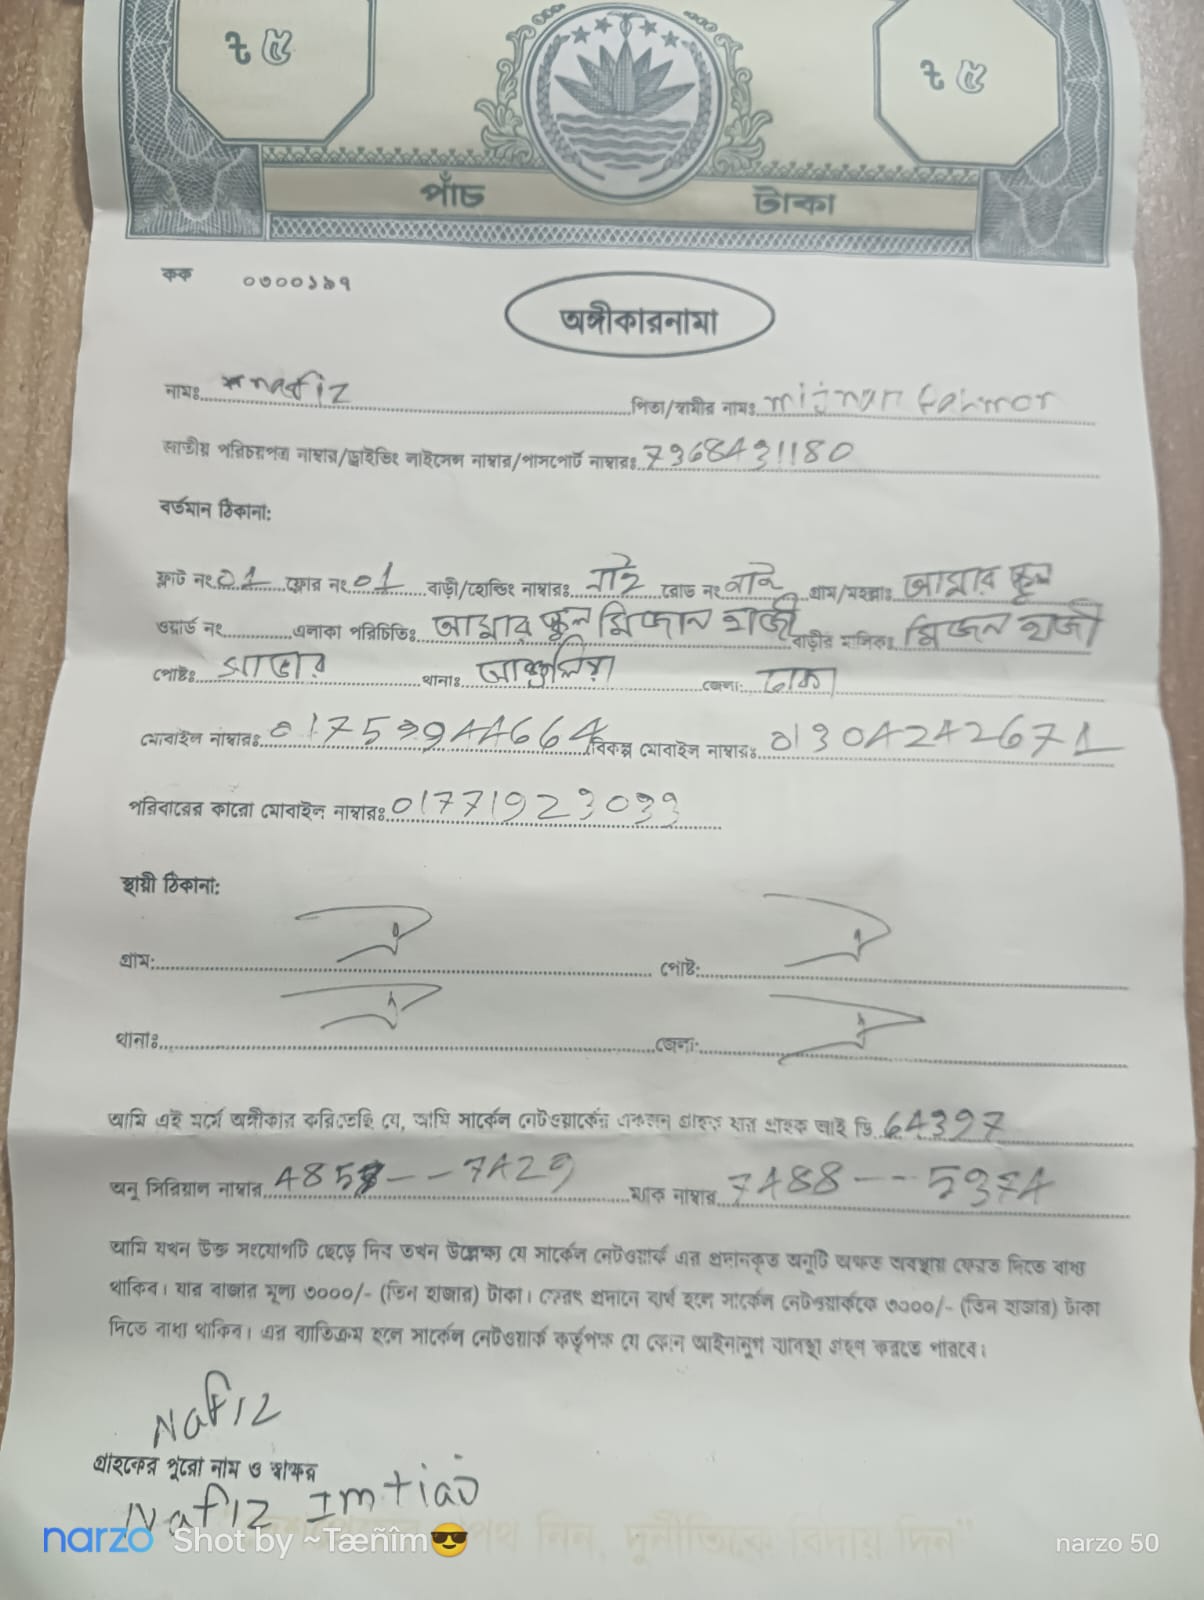 ৳ ৫ ৳ ৫
পাঁচ টাকা
কক ০৩০০১৯৭
অঙ্গীকারনামা
নামঃ nafiz পিতা/স্বামীর নামঃ mijnan
জাতীয় পরিচয়পত্র নাম্বার/ড্রাইভিং লাইসেন্স নাম্বার/পাসপোর্ট নাম্বারঃ 7368431180
বর্তমান ঠিকানা:
ফ্লাট নং 01 ফ্লোর নং 01 বাড়ী/হোল্ডিং নাম্বারঃ নাই রোড নং নাই গ্রাম/মহল্লাঃ আমার স্কুল
ওয়ার্ড নং এলাকা পরিচিতিঃ আমার স্কুল মিজান হাজী বাড়ীর মালিকঃ মিজান হাজী
পোষ্টঃ সাভার থানাঃ আশুলিয়া জেলা: ঢাকা
মোবাইল নাম্বারঃ 01759944664 বিকল্প মোবাইল নাম্বারঃ 01304242671
পরিবারের কারো মোবাইল নাম্বারঃ 01771923033
স্থায়ী ঠিকানা:
গ্রাম: ঐ পোষ্ট: ঐ
থানাঃ ঐ জেলা: ঐ
আমি এই মর্মে অঙ্গীকার করিতেছি যে, আমি সার্কেল নেটওয়ার্কের একজন গ্রাহক যার গ্রাহক আই ডি 64397
অনু সিরিয়াল নাম্বার 4857---7429 ম্যাক নাম্বার 7488---5374
আমি যখন উক্ত সংযোগটি ছেড়ে দিব তখন উল্লেক্ষ্য যে সার্কেল নেটওয়ার্ক এর প্রদানকৃত অনুটি অক্ষত অবস্থায় ফেরত দিতে বাধ্য
থাকিব। যার বাজার মূল্য ৩০০০/- (তিন হাজার) টাকা। ফেরৎ প্রদানে ব্যর্থ হলে সার্কেল নেটওয়ার্ককে ৩০০০/- (তিন হাজার) টাকা
দিতে বাধ্য থাকিব। এর ব্যাতিক্রম হলে সার্কেল নেটওয়ার্ক কর্তৃপক্ষ যে কোন আইনানুগ ব্যাবস্থা গ্রহণ করতে পারবে।
Nafiz
গ্রাহকের পুরো নাম ও স্বাক্ষর
Nafiz Imtiaj
শপথ নিন, দুর্নীতিকে বিদায় দিন"
narzo Shot by ~Tæñîm😎 narzo 50